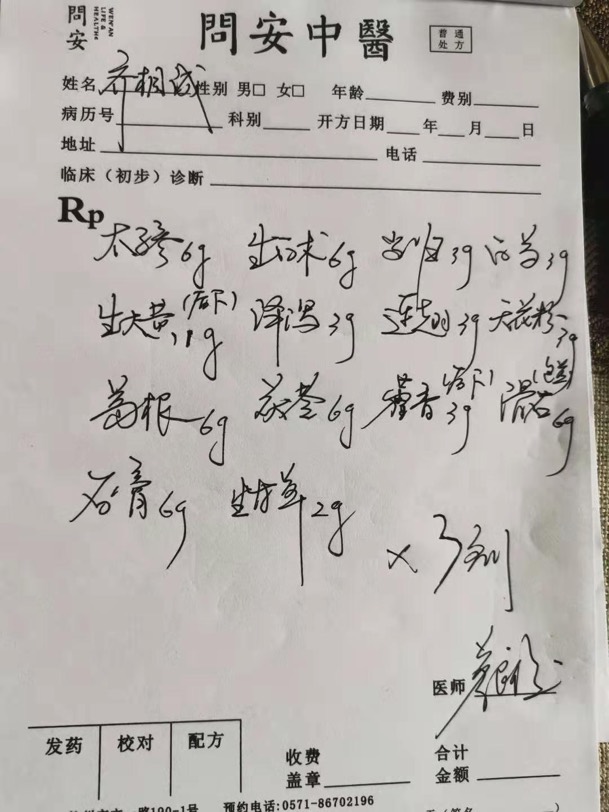 問安 WEN'AN LIFE & HEALTH
問安中醫
普通处方
姓名 性别 男□ 女□ 年龄 费别
病历号 科别 开方日期 年 月 日
地址 电话
临床（初步）诊断
Rp
太子参6g 生白术6g 当归3g 白芍3g
生大黄(后下) g 泽泻3g 连翘3g 天花粉3g
葛根6g 茯苓6g 藿香(后下)3g 滑石(包煎)6g
石膏6g 生甘草2g
×3剂
医师
发药 校对 配方
收费盖章 合计金额
路190-1号 预约电话:0571-86702196